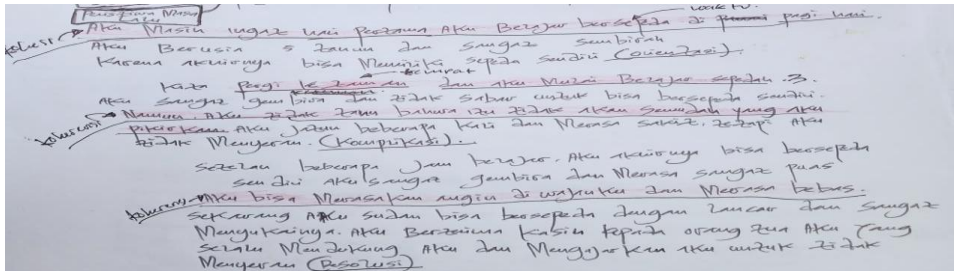 Peristiwa Masa
Lalu
waktu
kohesi
Aku Masih ingat hari pertama Aku Belajar bersepeda di pagi hari.
Aku Berusia 5 tahun dan sangat gembirah
Karena akhirnya bisa Memiliki sepeda sendiri (orientasi).
tempat
Kita pergi ke taman dan aku Mulai Belajar sepedah .3.
Aku sangat gembira dan tidak sabar untuk bisa bersepeda sendiri.
koherensi
Namun, Aku tidak tahu bahwa itu tidak akan semudah yang aku
pikirkan. Aku jatuh beberapa kali dan Merasa sakit. tetapi Aku
tidak Menyerah. (Komplikasi).
Setelah beberapa jam belajar. Aku akhirnya bisa bersepeda
sendiri Aku sangat gembira dan Merasa sangat puas
koherensi
Aku bisa Merasakan angin di wajahku dan Merasa bebas.
sekarang Aku sudah bisa bersepeda dengan lancar dan sangat
Menyukainya. Aku Berterima kasih kepada orang tua Aku yang
selalu Mendukung Aku dan Mengajarkan aku untuk tidak
Menyerah (Resolusi)